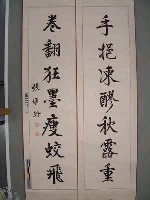 手挹凍醪秋露重
卷翻狂墨瘦蛟飛